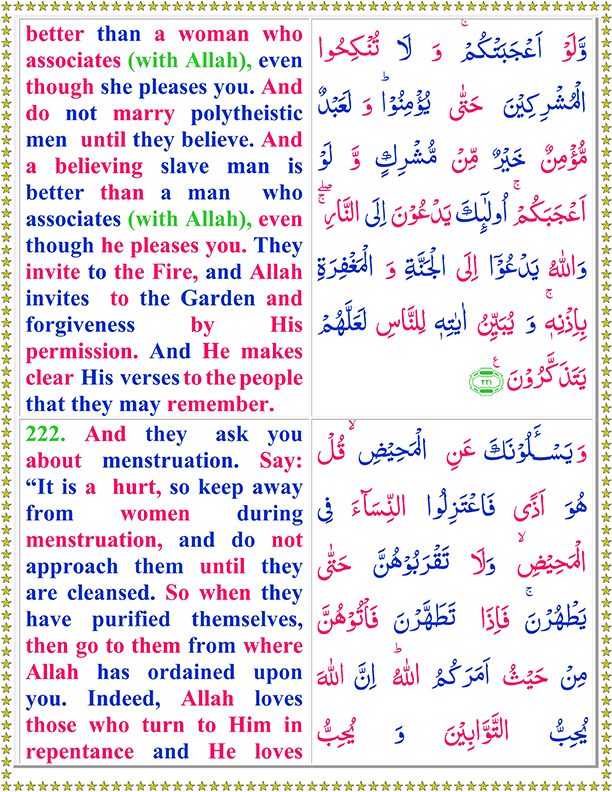 better than a woman who
associates (with Allah), even
though she pleases you. And
do not marry polytheistic
men until they believe. And
a believing slave man is
better than a man who
associates (with Allah), even
though he pleases you. They
invite to the Fire, and Allah
invites to the Garden and
forgiveness by His
permission. And He makes
clear His verses to the people
that they may remember.
وَّلَوْ اَعْجَبَتْكُمْ ۚ وَ لَا تُنْكِحُوا
الْمُشْرِكِيْنَ حَتّٰى يُؤْمِنُوْا ؕ وَ لَعَبْدٌ
مُّؤْمِنٌ خَيْرٌ مِّنْ مُّشْرِكٍ وَّ لَوْ
اَعْجَبَكُمْ ؕ اُولٰٓىِٕكَ يَدْعُوْنَ اِلَى النَّارِ ۖۚ
وَاللّٰهُ يَدْعُوْۤا اِلَى الْجَنَّةِ وَ الْمَغْفِرَةِ
بِاِذْنِهٖ ۚ وَ يُبَيِّنُ اٰيٰتِهٖ لِلنَّاسِ لَعَلَّهُمْ
يَتَذَكَّرُوْنَ ۠ ﴿۲۲۱﴾
222. And they ask you
about menstruation. Say:
“It is a hurt, so keep away
from women during
menstruation, and do not
approach them until they
are cleansed. So when they
have purified themselves,
then go to them from where
Allah has ordained upon
you. Indeed, Allah loves
those who turn to Him in
repentance and He loves
وَيَسْـَٔلُوْنَكَ عَنِ الْمَحِيْضِ ؕ قُلْ
هُوَ اَذًى فَاعْتَزِلُوا النِّسَآءَ فِى
الْمَحِيْضِ ۙ وَلَا تَقْرَبُوْهُنَّ حَتّٰى
يَطْهُرْنَ ۚ فَاِذَا تَطَهَّرْنَ فَاْتُوْهُنَّ
مِنْ حَيْثُ اَمَرَكُمُ اللّٰهُ ؕ اِنَّ اللّٰهَ
يُحِبُّ التَّوَّابِيْنَ وَ يُحِبُّ